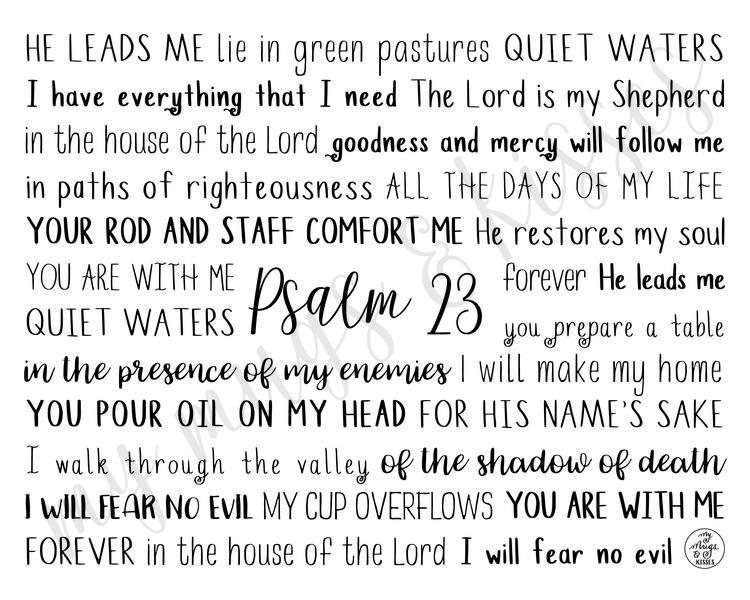 HE LEADS ME lie in green pastures QUIET WATERS
I have everything that I need The Lord is my Shepherd
in the house of the Lord goodness and mercy will follow me
in paths of righteousness ALL THE DAYS OF MY LIFE
YOUR ROD AND STAFF COMFORT ME He restores my soul
YOU ARE WITH ME
QUIET WATERS
Psalm 23
forever He leads me
you prepare a table
in the presence of my enemies I will make my home
YOU POUR OIL ON MY HEAD FOR HIS NAME'S SAKE
I walk through the valley of the shadow of death
I WILL FEAR NO EVIL MY CUP OVERFLOWS YOU ARE WITH ME
FOREVER in the house of the Lord I will fear no evil
my
Mugs
&
KISSES
my mugs & kisses